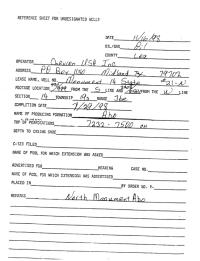 REFERENCE SHEET FOR UNDESIGNATED WELLS
DATE 11/16/93
OIL/GAS Oil
COUNTY Lea
OPERATOR Chevron USA Inc
ADDRESS PO Box 1150 Midland Tx 79702
LEASE NAME, WELL NO. Monument 14 State #
FOOTAGE LOCATION FROM THE S LINE AND FROM THE W LINE
SECTION 14 TOWNSHIP 19s RANGE 36e
COMPLETION DATE 9/29/93
NAME OF PRODUCING FORMATION Abo
TOP OF PERFORATIONS 7232 - 7500
DEPTH TO CASING SHOE
C-123 FILED
NAME OF POOL FOR WHICH EXTENSION WAS ASKED
ADVERTISED FOR HEARING CASE NO.
NAME OF POOL FOR WHICH EXTENSION WAS ADVERTISED
PLACED IN BY ORDER NO. R-
North Monument Abo